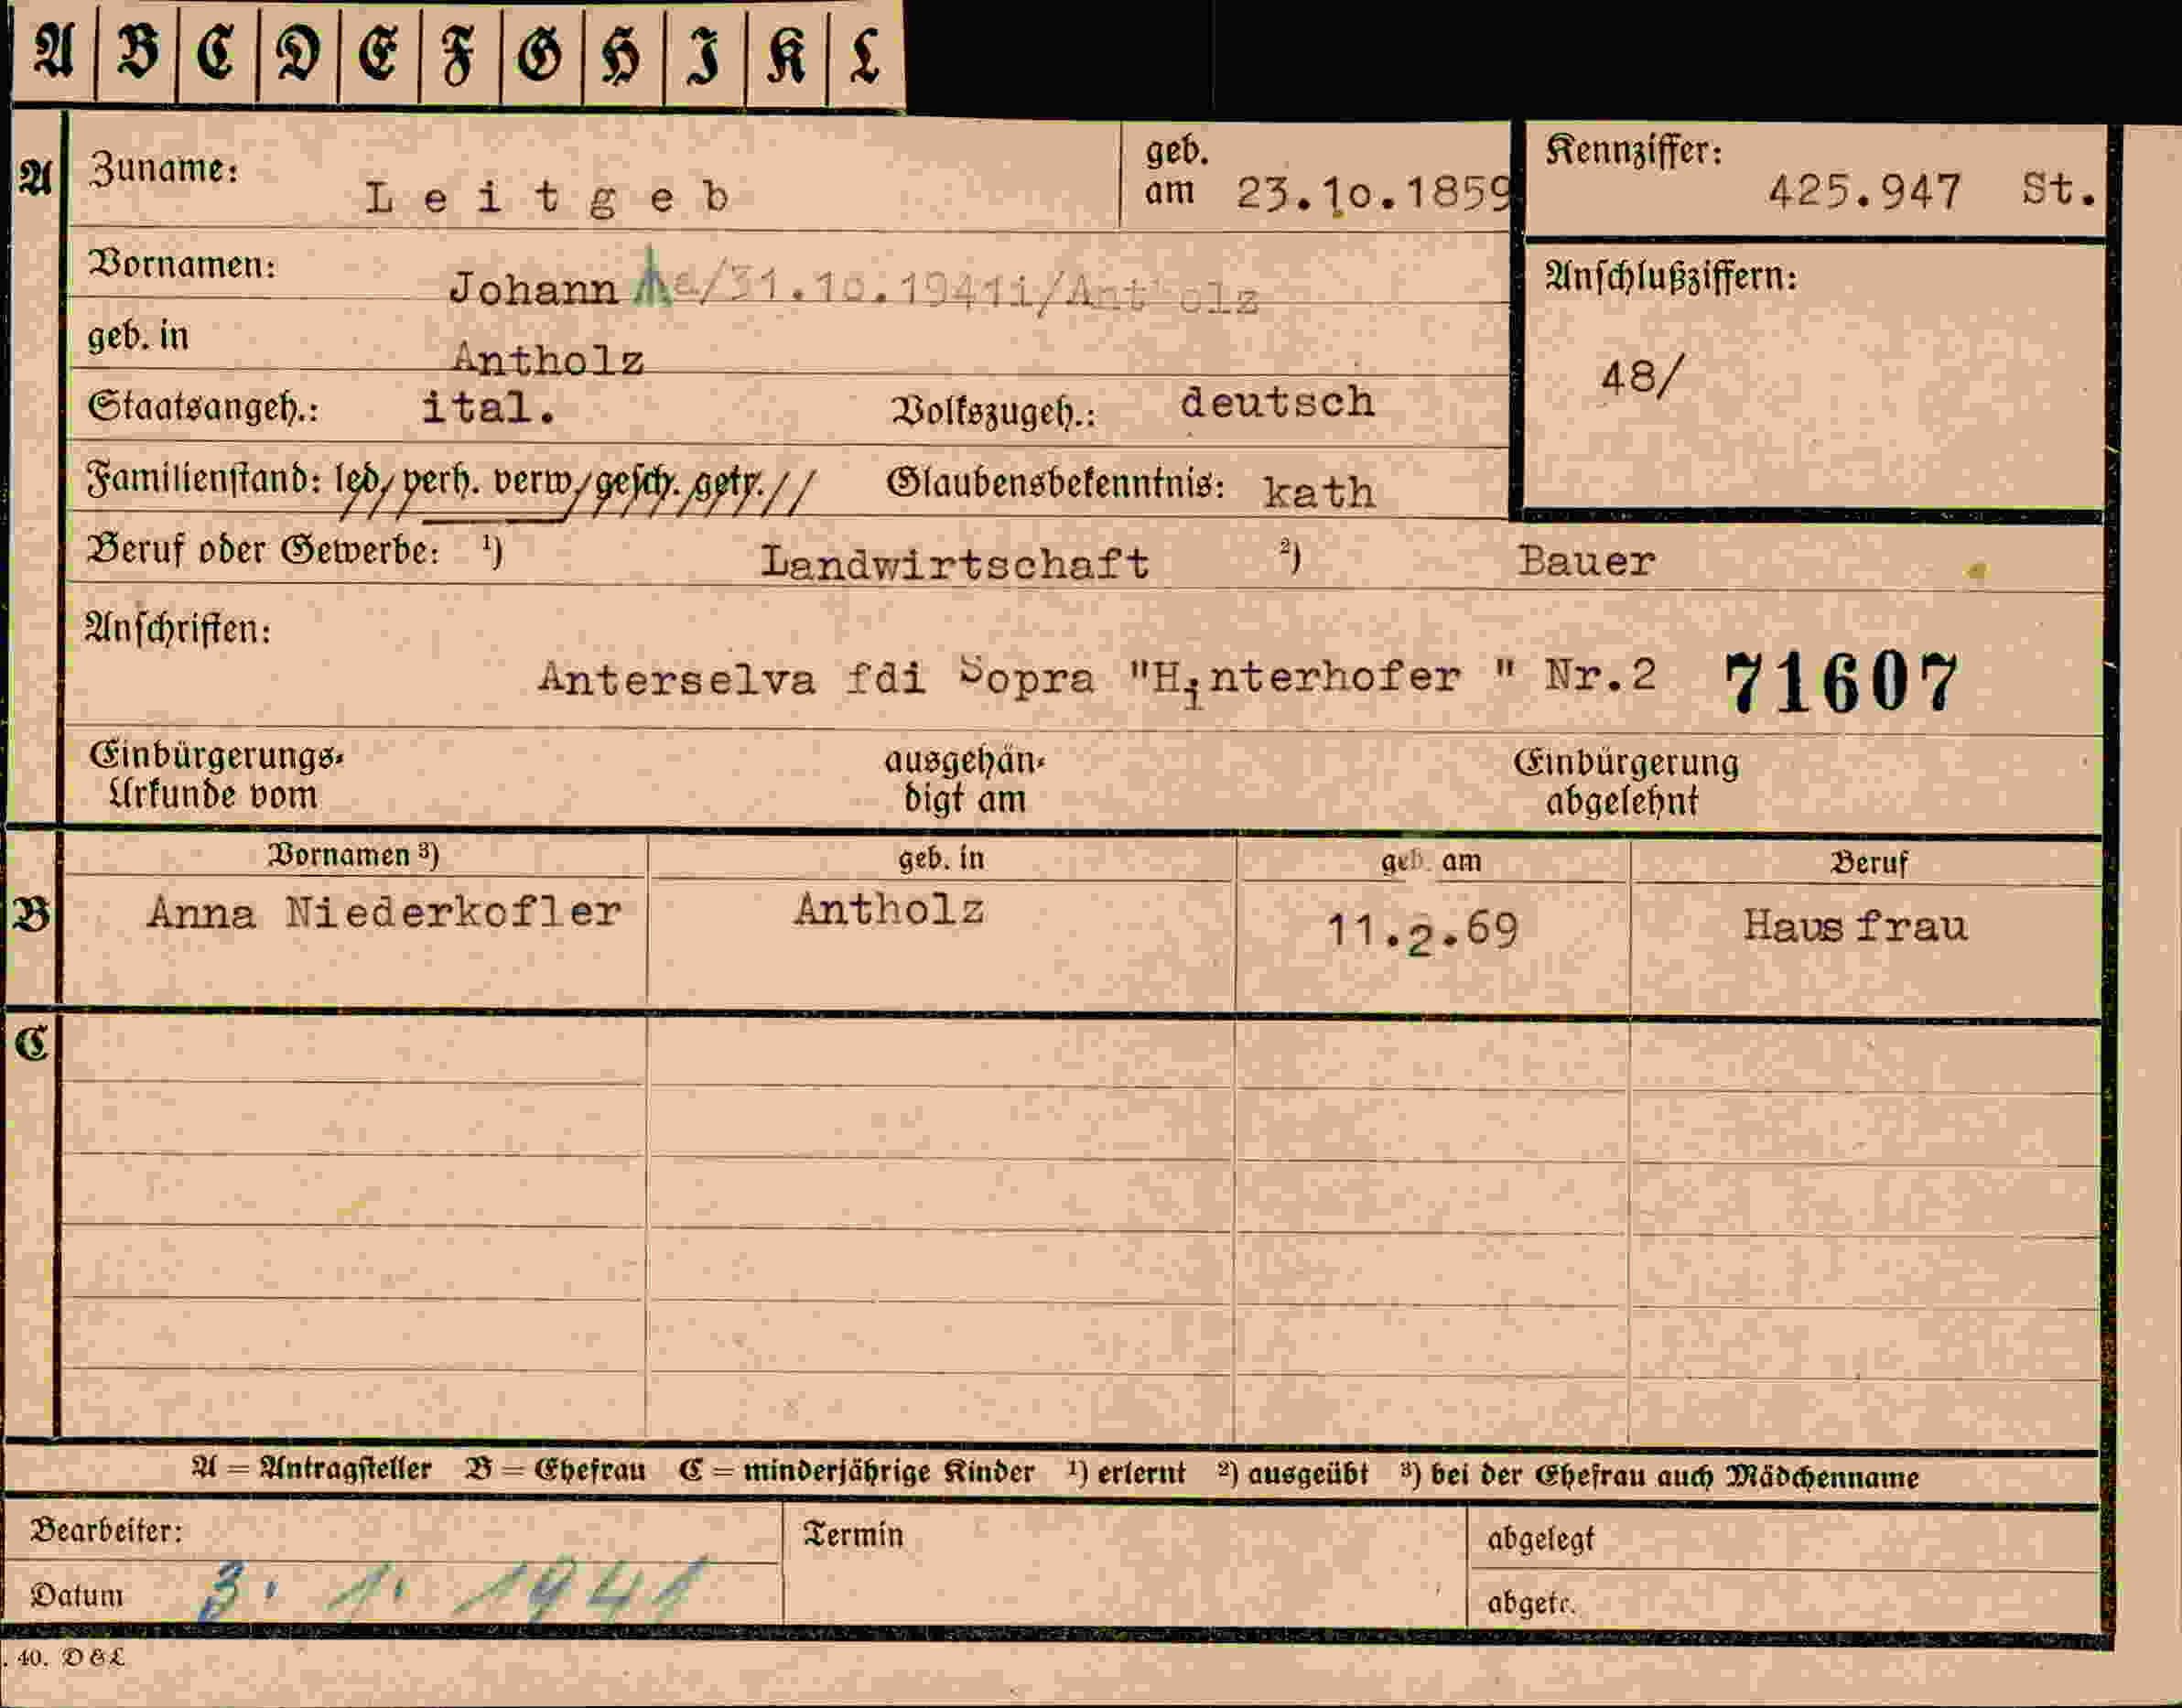 A B C D E F G H I K L
A Zuname: Leitgeb geb. am 23.10.1859 Kennziffer: 425.947 St.
Vornamen: Johann /31.10.1941 Anschlußziffern:
geb. in Antholz 48/
Staatsangeh.: ital. Volkszugeh.: deutsch
Familienstand: led. verh. verw. gesch. getr. Glaubensbekenntnis: kath
Beruf oder Gewerbe: ¹) Landwirtschaft ²) Bauer
Anschriften:
Anterselva fdi Sopra "Hinterhofer " Nr.2 71607
Einbürgerungs- ausgehän- Einbürgerung
Urkunde vom digt am abgelehnt
Vornamen ³) geb. in geb. am Beruf
B Anna Niederkofler Antholz 11.2.69 Hausfrau
C
A = Antragsteller B = Ehefrau C = minderjährige Kinder ¹) erlernt ²) ausgeübt ³) bei der Ehefrau auch Mädchenname
Bearbeiter: Termin abgelegt
Datum 3. 1. 1941 abgetr.
. 40. D&L